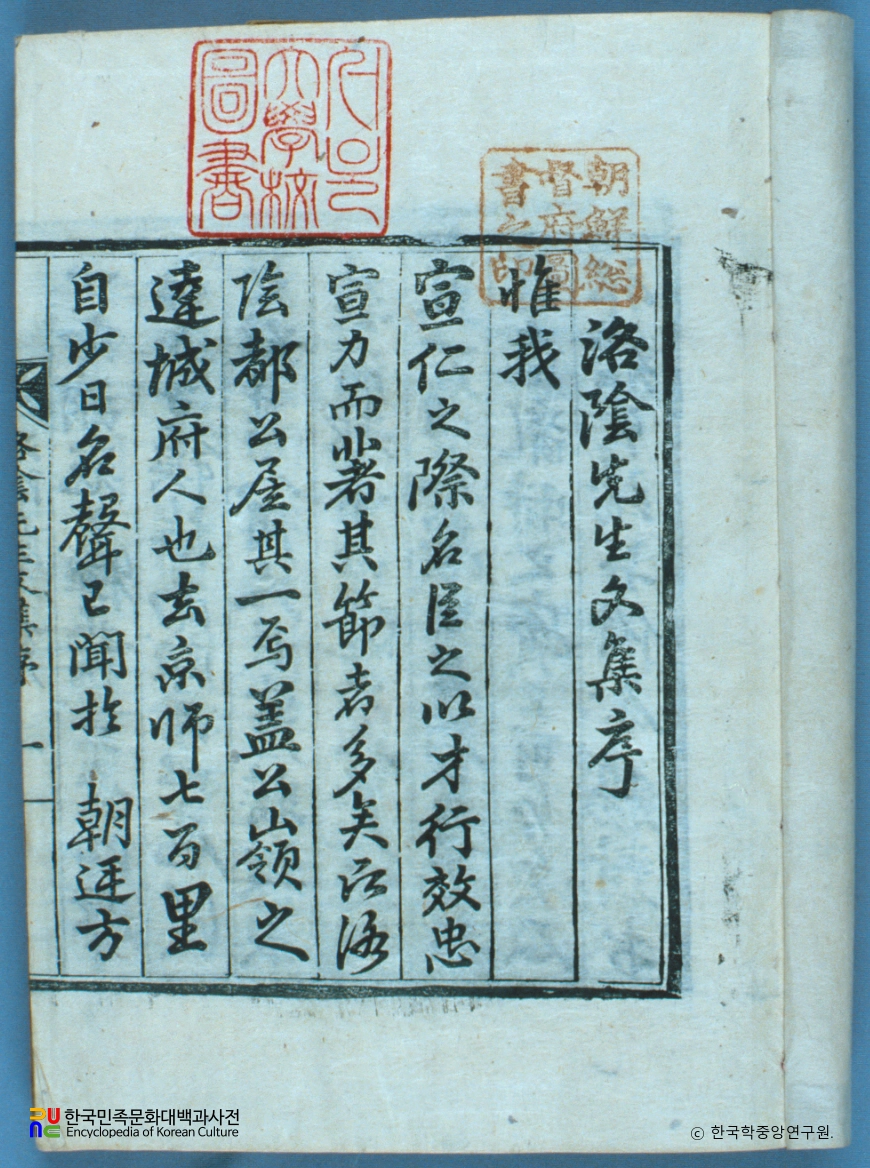 서울
大學校
圖書
朝鮮総
督府圖
書之印
洛陰先生文集序
惟我
宣仁之際名臣之以才行效忠
宣力而著其節者多矣洛
陰都公居其一焉盖公山嶺之
達城府人也去京師七百里
自少日名聲已聞於 朝廷方
洛陰先生文集序 一
한국민족문화대백과사전
Encyclopedia of Korean Culture
© 한국학중앙연구원.